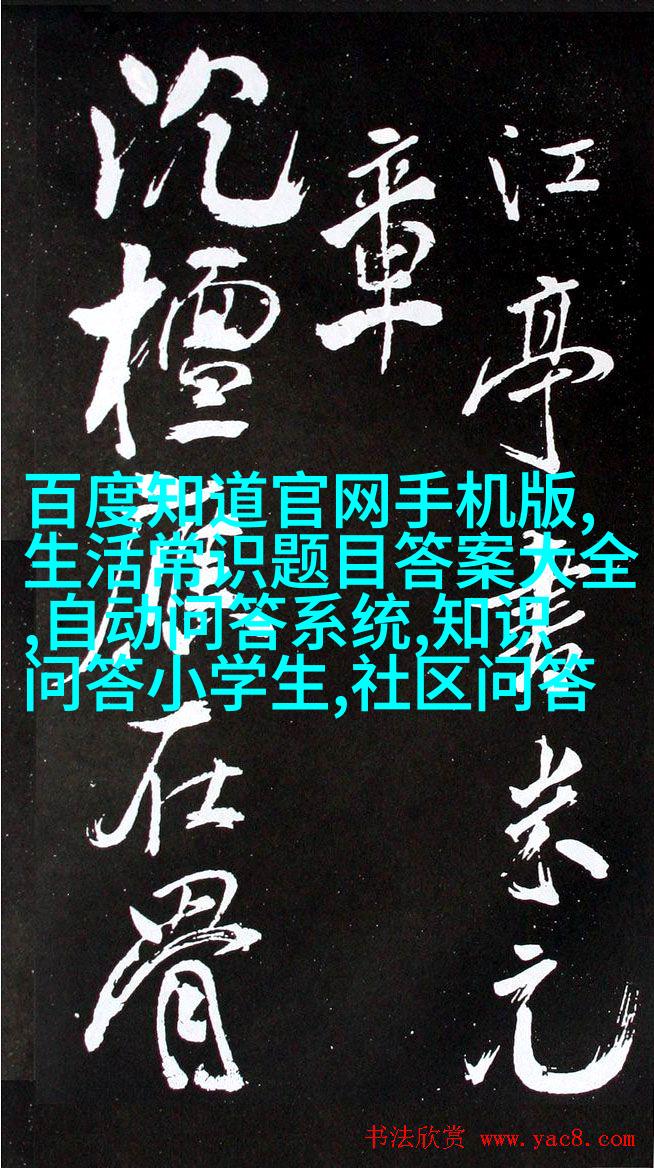 江亭書米元
章
沉檀在骨
百度知道官网手机版,
生活常识题目答案大全
,自动问答系统,知识
问答小学生,社区问答
书法欣赏 www.yac8.com